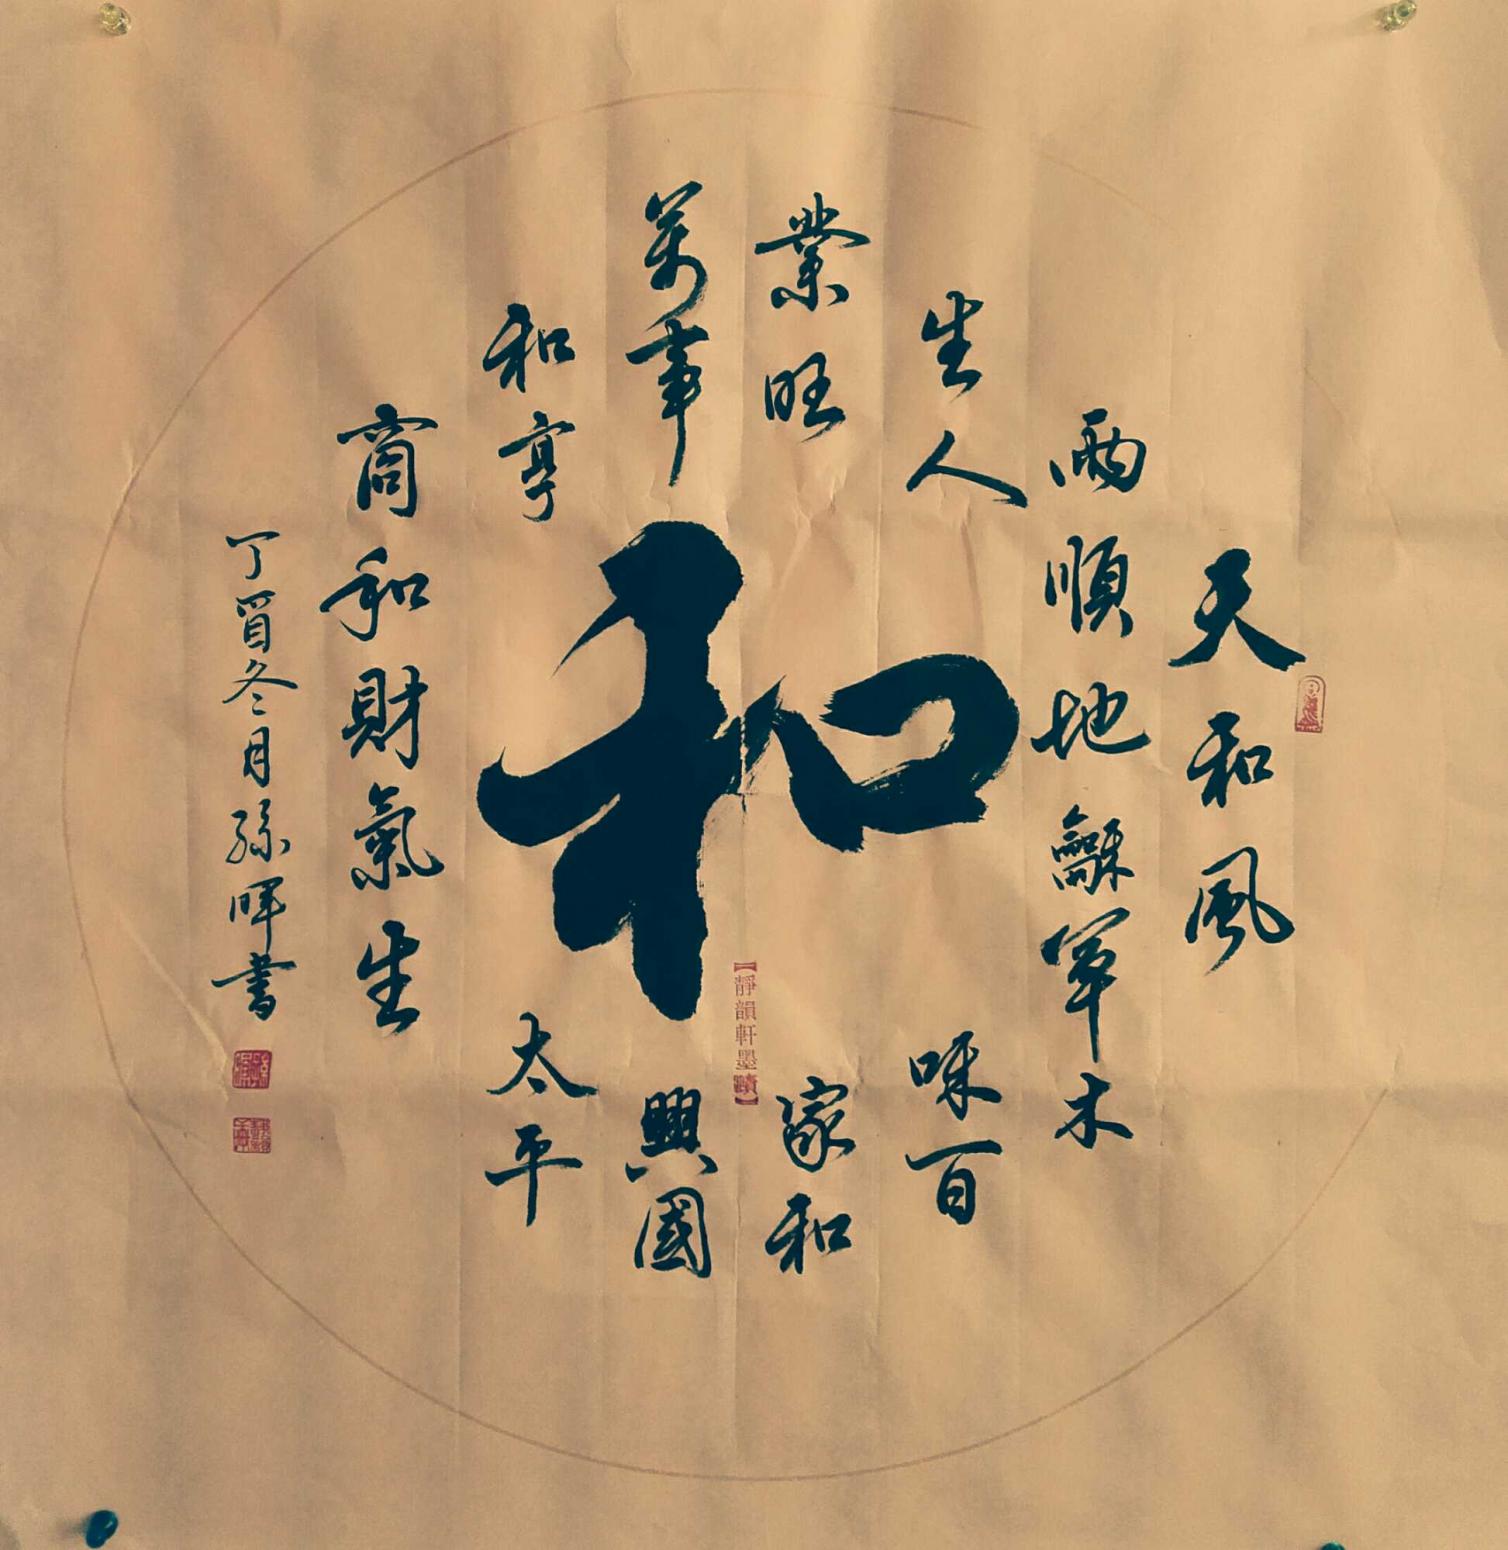 天和風
雨順地龢草木
生人咊百
業旺家和
萬事興國
和享太平
商和財氣生
丁酉冬月孫暉書
和
【靜韻軒墨蹟】